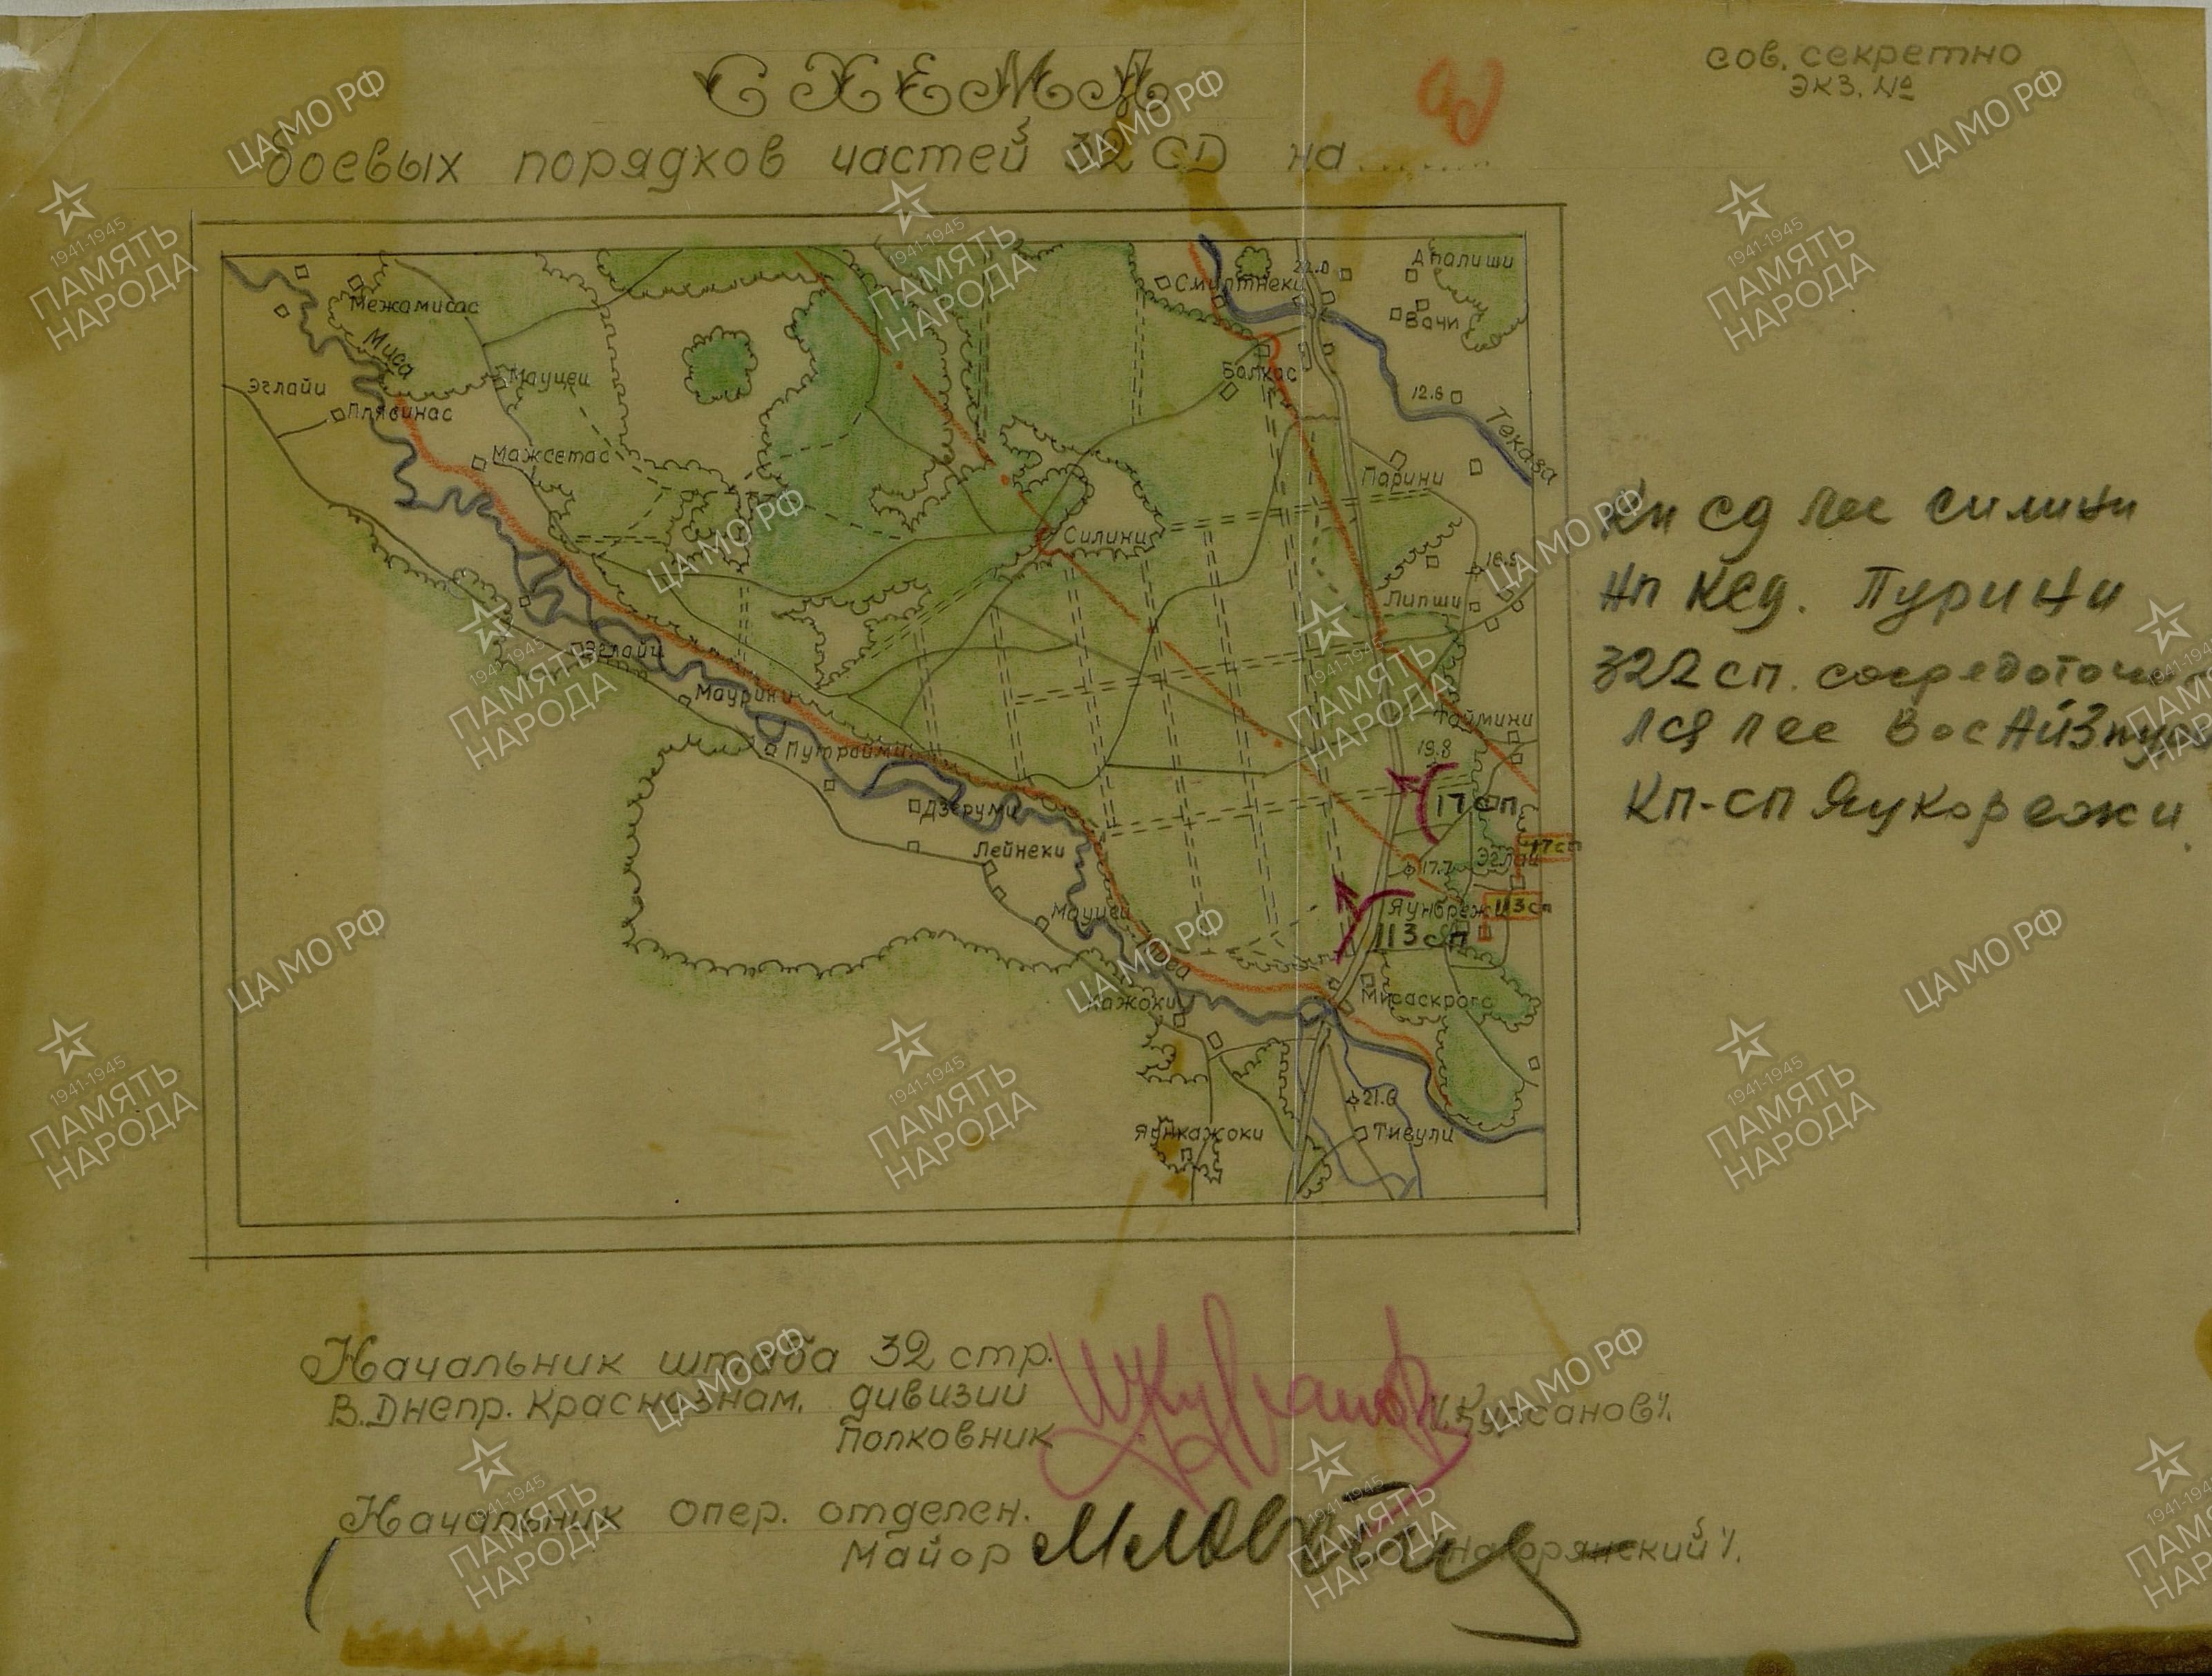 сов. секретно
экз. №
СХЕМА
боевых порядков частей 32 СД на........
Смиртнеки
22.0
Апалиши
Вачи
Межамисас
Миса
Мауцеи
Эглайи
Плявинас
Балкас
12.6
Тəкава
Мажсетас
Парини
Силини
16.5
Липши
Эглайи
Маурини
Путрайми
Таймини
19.8
17 сп
Дзеруми
Лейнеки
17.7
Эглаи
17 сп
Мауцеи
Яунбрежи
113 сп
113 сп
Миса
Кажоки
Мисаскрогс
21.6
Яункажоки
Тивули
Кп сд лес силини
Нп Ксд. Пурини
322 сп. сосредоточи-
лся лес вос
Кп-сп
Начальник штаба 32 стр.
В.Днепр. Краснознам. дивизии
Полковник /.Курсанов/.
Начальник опер. отделен.
Майор /Нагорянский/.
ЦАМО РФ
1941-1945
ПАМЯТЬ
НАРОДА